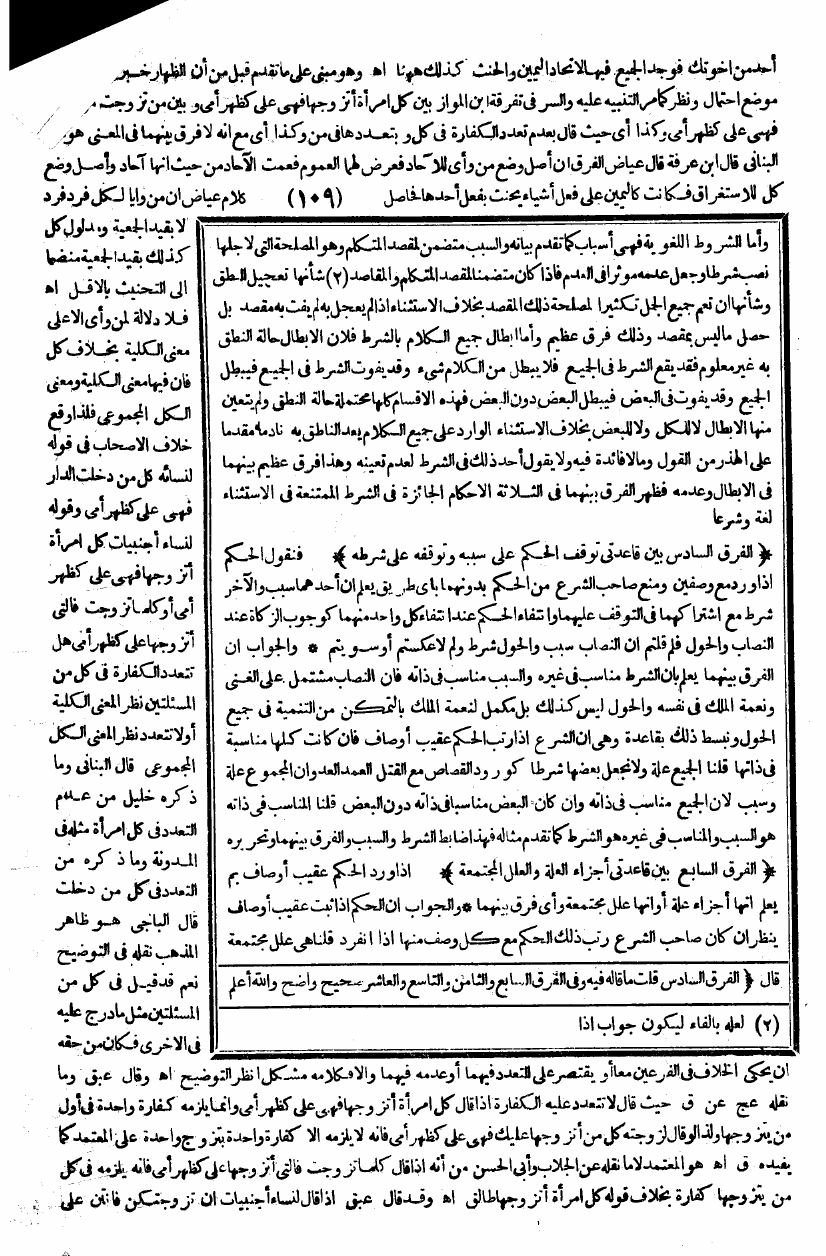 أحد من اخوتك فوجد الجميع فيها لاتحاد اليمين والحنث كذلك ههنا اه وهو مبنى على ما تقدم قبل من أن الظهار خبر
موضع احتمال ونظر كما مر التنبيه عليه والسر فى تفرقة ابن المواز بين كل امرأة أتزوجها فهى على كظهر أمى وبين من تزوجت
فهى على كظهر أمى وكذا أى حيث قال بعدم تعدد الكفارة فى كل وبتعددها فى من وكذا أى مع انه لا فرق بينهما فى المعنى هو
البنانى قال ابن عرفة قال عياض الفرق ان أصل وضع من وأى للآحاد فعرض لها العموم فعمت الآحاد من حيث انها آحاد وأصل وضع
كل للاستغراق فكانت كاليمين على فعل أشياء يحنث بفعل أحدها فحاصل (١٠٩) كلام عياض ان من وايا لكل فرد فرد
لا بقيد الجمعية ومدلول كل
كذلك بقيد الجمعية منضما
الى التحنيث بالاقل اه
فلا دلالة لمن وأى الا على
معنى الكلية بخلاف كل
فان فيها معنى الكلية ومعنى
الكل المجموعى فلذا وقع
خلاف الاصحاب فى قوله
لنسائه كل من دخلت الدار
فهى على كظهر أمى وقوله
لنساء أجنبيات كل امرأة
أتزوجها فهى على كظهر
أمى أو كلما تزوجت فالتى
أتزوجها على كظهر أمى هل
تتعدد الكفارة فى كل من
المسئلتين نظر المعنى الكلية
أولا تتعدد نظر المعنى الكل
المجموعى قال البنانى وما
ذكره خليل من عدم
التعدد فى كل امرأة مثله فى
المدونة وما ذكره من
التعدد فى كل من دخلت
قال الباجى هو ظاهر
المذهب نقله فى التوضيح
نعم قد قيل فى كل من
المسئلتين مثل ما درج عليه
فى الاخرى فكان من حقه
وأما الشروط اللغوية فهى أسباب كما تقدم بيانه والسبب متضمن لمقصد المتكلم وهو المصلحة التى لاجلها
نصب شرطا وجعل عدمه مؤثرا فى العدم فاذا كان متضمنا لمقصد المتكلم والمقاصد (٢) شأنها تعجيل النطق
وشأنها ان تعم جميع الجمل تكثيرا لمصلحة ذلك المقصد بخلاف الاستثناء اذا لم يعجل به لم يفت به مقصد بل
حصل ما ليس بمقصد وذلك فرق عظيم وأما ابطال جميع الكلام بالشرط فلان الابطال حالة النطق
به غير معلوم فقد يقع الشرط فى الجميع فلا يبطل من الكلام شىء وقد يفوت الشرط فى الجميع فيبطل
الجميع وقد يفوت فى البعض فيبطل البعض دون البعض فهذه الاقسام كلها محتملة حالة النطق ولم يتعين
منها الابطال لا للكل ولا للبعض بخلاف الاستثناء الوارد على جميع الكلام يعد الناطق به نادما مقدما
على الهذر من القول وما لا فائدة فيه ولا يقول أحد ذلك فى الشرط لعدم تعينه وهذا فرق عظيم بينهما
فى الابطال وعدمه فظهر الفرق بينهما فى الثلاثة الاحكام الجائزة فى الشرط الممتنعة فى الاستثناء
لغة وشرعا
﴿ الفرق السادس بين قاعدتى توقف الحكم على سببه وتوقفه على شرطه ﴾ فنقول الحكم
اذا ورد مع وصفين ومنع صاحب الشرع من الحكم بدونهما باى طريق يعلم ان أحدهما سبب والآخر
شرط مع اشتراكهما فى التوقف عليهما وانتفاء الحكم عند انتفاء كل واحد منهما كوجوب الزكاة عند
النصاب والحول فلم قلتم ان النصاب سبب والحول شرط ولم لا عكستم أو سويتم * والجواب ان
الفرق بينهما يعلم بان الشرط مناسب فى غيره والسبب مناسب فى ذاته فان النصاب مشتمل على الغنى
ونعمة الملك فى نفسه والحول ليس كذلك بل مكمل لنعمة الملك بالتمكن من التنمية فى جميع
الحول ونبسط ذلك بقاعدة وهى ان الشرع اذا رتب الحكم عقيب أوصاف فان كانت كلها مناسبة
فى ذاتها قلنا الجميع علة ولا نجعل بعضها شرطا كورود القصاص مع القتل العمد العدوان المجموع علة
وسبب لان الجميع مناسب فى ذاته وان كان البعض مناسبا فى ذاته دون البعض قلنا المناسب فى ذاته
هو السبب والمناسب فى غيره هو الشرط كما تقدم مثاله فهذا ضابط الشرط والسبب والفرق بينهما وتحريره
﴿ الفرق السابع بين قاعدتى أجزاء العلة والعلل المجتمعة ﴾ اذا ورد الحكم عقيب أوصاف بم
يعلم انها أجزاء علة أو انها علل مجتمعة وأى فرق بينهما * والجواب ان الحكم اذا ثبت عقيب أوصاف
ينظر ان كان صاحب الشرع رتب ذلك الحكم مع كل وصف منها اذا انفرد قلنا هى علل مجتمعة
قال ﴿ الفرق السادس قلت ما قاله فيه وفى الفرق السابع والثامن والتاسع والعاشر صحيح واضح والله أعلم
(٢) لعله بالفاء ليكون جواب اذا
ان يحكى الخلاف فى الفرعين معا أو يقتصر على التعدد فيهما أو عدمه فيهما والا فكلامه مشكل انظر التوضيح اه وقال عبق وما
نقله عج عن ق حيث قال لا تتعدد عليه الكفارة اذا قال كل امرأة أتزوجها فهى على كظهر أمى وانما يلزمه كفارة واحدة فى أول
من يتزوجها ولذا لو قال لزوجته كل من أتزوجها عليك فهى على كظهر أمى فانه لا يلزمه الا كفارة واحدة بتزوج واحدة على المعتمد كما
يفيده ق اه هو المعتمد لا ما نقله عن الجلاب وأبى الحسن من أنه اذا قال كلما تزوجت فالتى أتزوجها على كظهر أمى فانه يلزمه فى كل
من يتزوجها كفارة بخلاف قوله كل امرأة أتزوجها طالق اه وقد قال عبق اذا قال لنساء أجنبيات ان تزوجتكن فانتن على